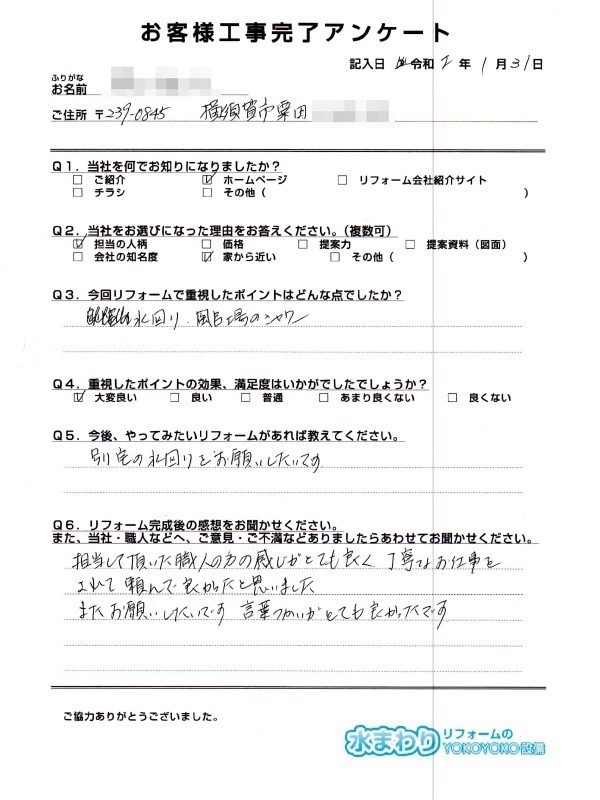 お客様工事完了アンケート
記入日 令和 2 年 1 月 31 日
ふりがな
お名前
ご住所 〒239-0845 横須賀市粟田
Q1．当社を何でお知りになりましたか？
□ ご紹介 ☑ ホームページ □ リフォーム会社紹介サイト
□ チラシ □ その他（ ）
Q2．当社をお選びになった理由をお答えください。（複数可）
☑ 担当の人柄 □ 価格 □ 提案力 □ 提案資料（図面）
□ 会社の知名度 ☑ 家から近い □ その他（ ）
Q3．今回リフォームで重視したポイントはどんな点でしたか？
水回り．風呂場のシャワー
Q4．重視したポイントの効果、満足度はいかがでしたでしょうか？
☑ 大変良い □ 良い □ 普通 □ あまり良くない □ 良くない
Q5．今後、やってみたいリフォームがあれば教えてください。
別宅の水回りをお願いしたいです
Q6．リフォーム完成後の感想をお聞かせください。
また、当社・職人などへ、ご意見・ご不満などありましたらあわせてお聞かせください。
担当して頂いた職人の方の感じがとても良く 丁寧なお仕事を
されて 頼んで良かったと思いました
またお願いしたいです 言葉づかいがとても良かったです
ご協力ありがとうございました。
水まわりリフォームのYOKOYOKO設備